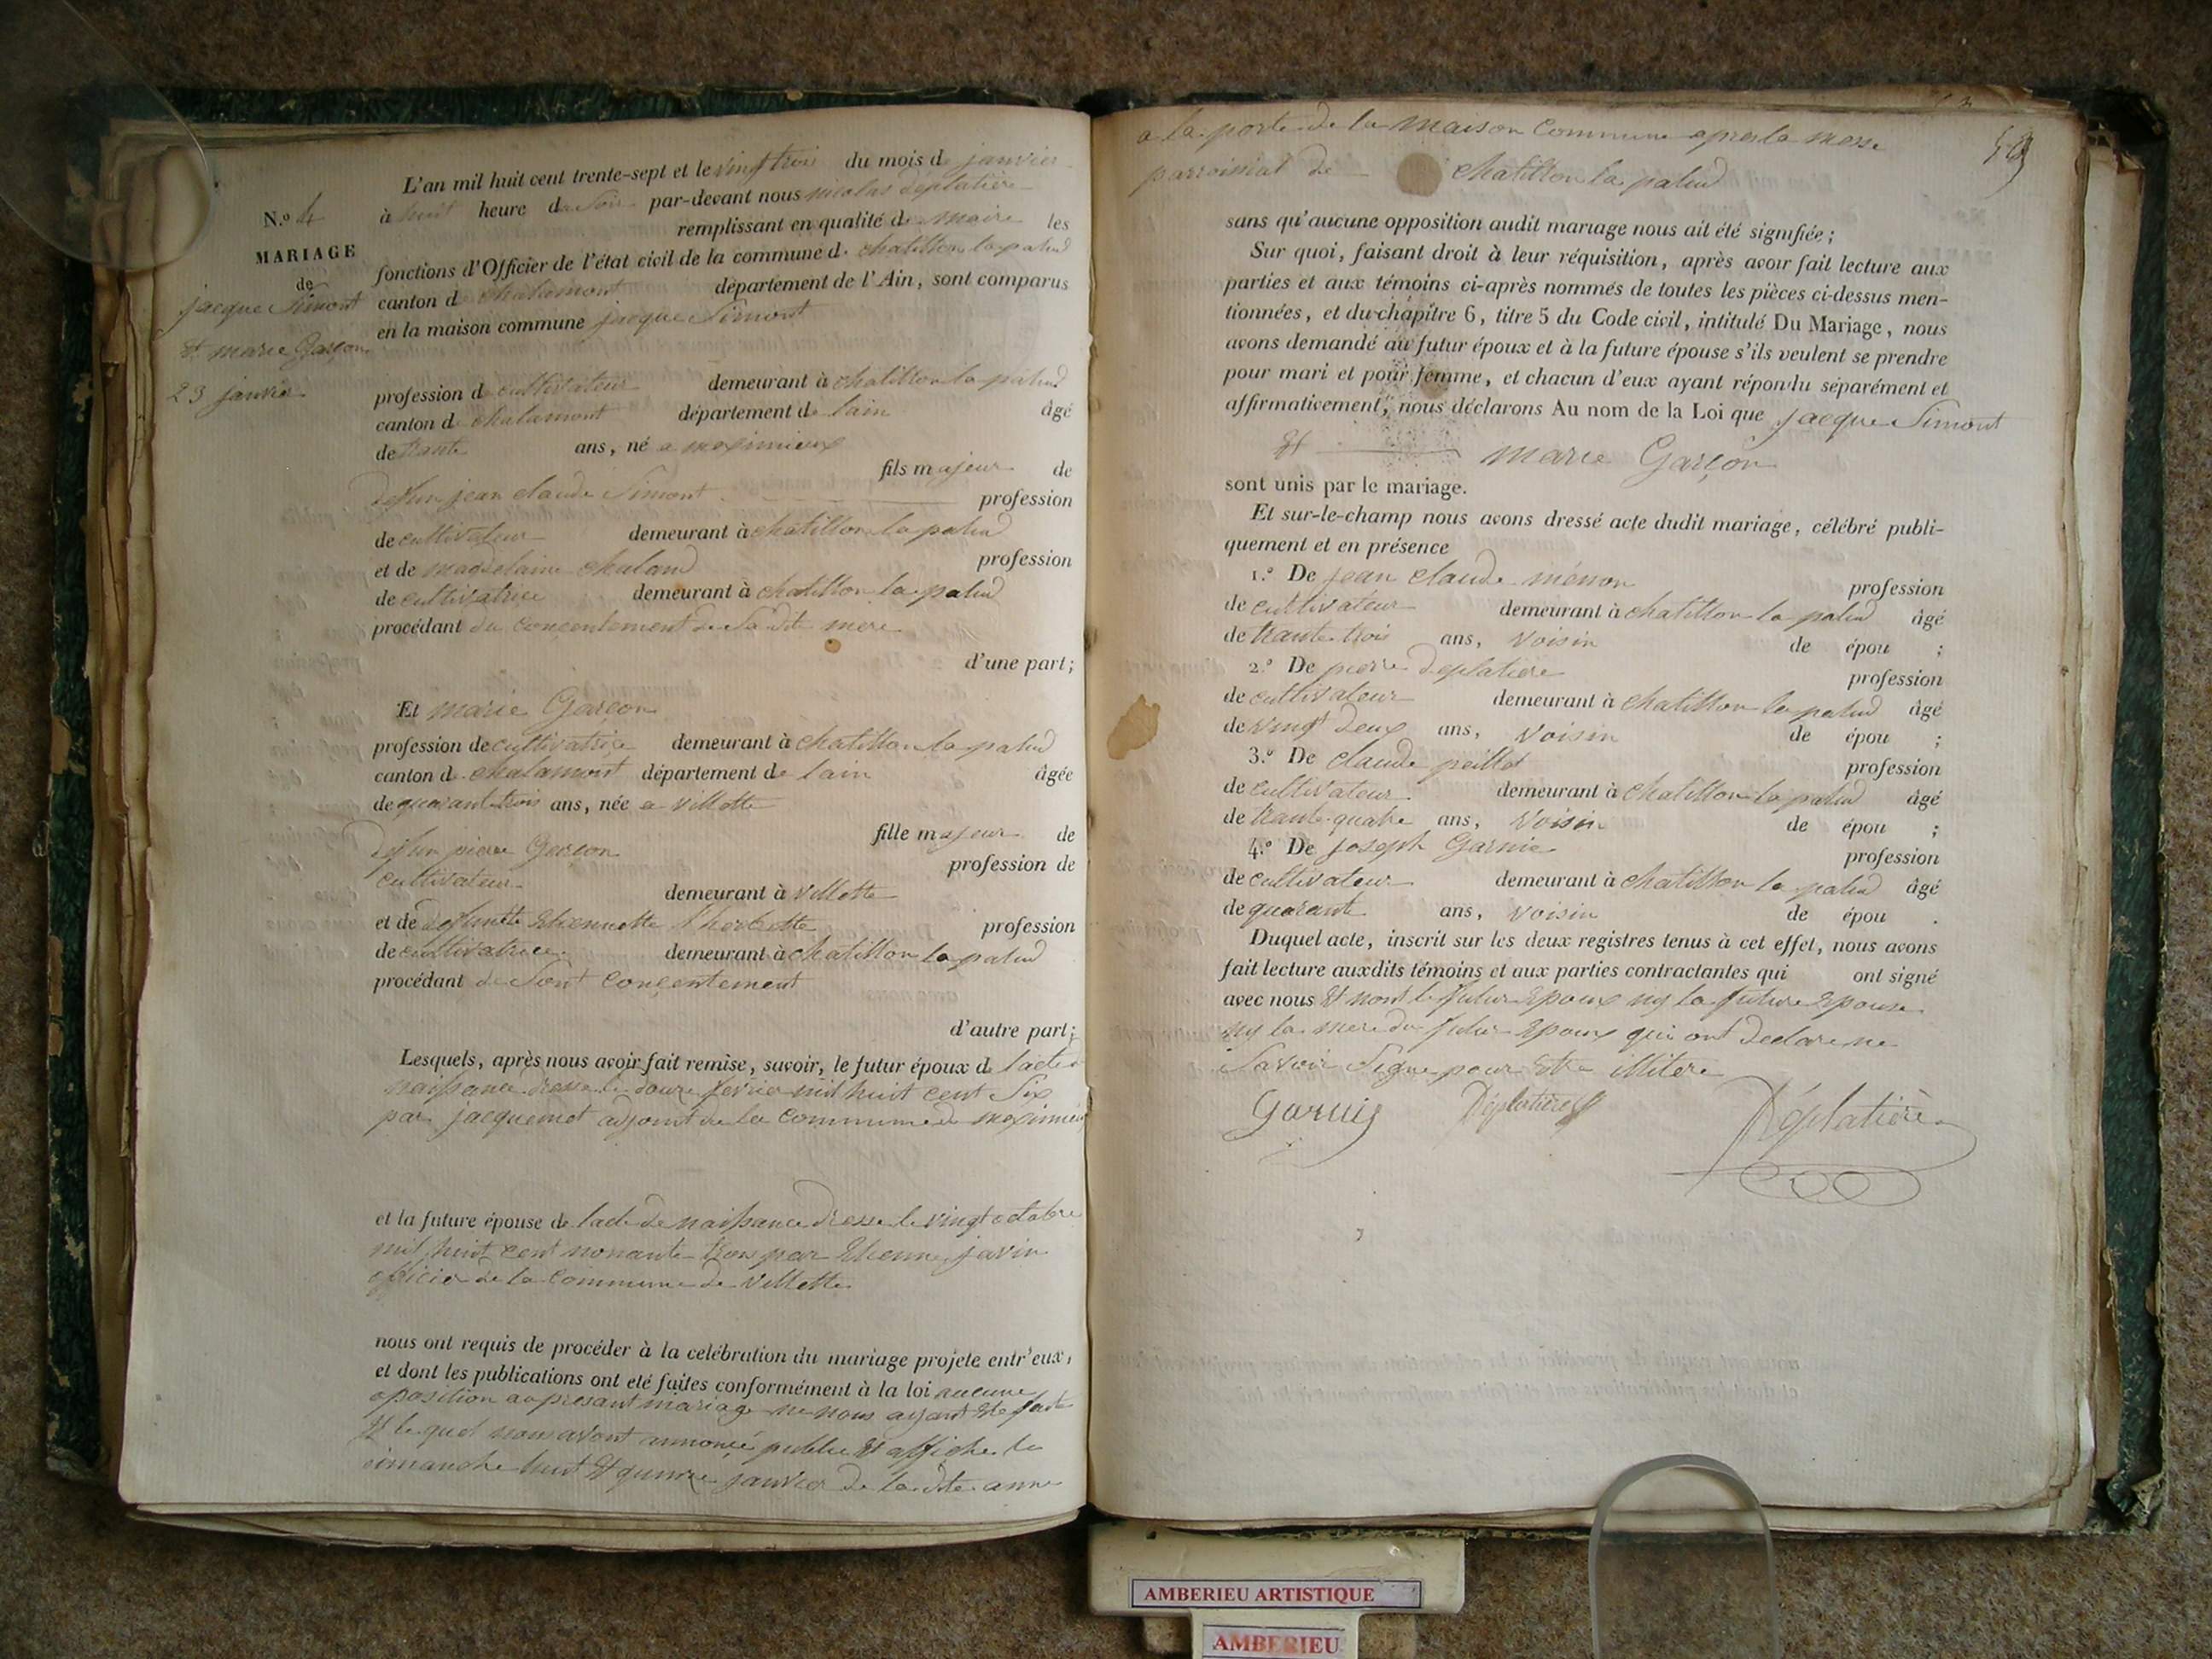 N.o 4
MARIAGE
de
jacque Simont
et marie Garçon
23 janvier
L'an mil huit cent trente-sept et le vingt trois du mois d janvier
à huit heure du Soir par-devant nous nicolas déplatière
remplissant en qualité de maire les
fonctions d'Officier de l'état civil de la commune d. chatillon la palud
canton d chalamont département de l'Ain, sont comparus
en la maison commune jacque Simont
profession d cultivateur demeurant à chatillon la palud
canton d chalamont département de lain âgé
de trante ans, né a meximieux
fils majeur de
defun jean claude Simont profession
de cultivateur demeurant à chatillon la palud
et de magdelaine chaland profession
de cultivatrice demeurant à chatillon la palud
procédant du concentement de Sa dite mere
d'une part;
Et marie Garçon
profession de cultivatrice demeurant à chatillon la palud
canton d. chalamont département de lain âgée
de quarant trois ans, née a villette
fille majeur de
defun pierre Garçon profession de
cultivateur demeurant à villette
et de defunte Etiennette profession
de cultivatrice demeurant à chatillon la palud
procédant de Sont concentement
d'autre part;
Lesquels, après nous avoir fait remise, savoir, le futur époux d lacte d
naissance dresse le douze fevrier mil huit cent Six
par jacquemet adjoint de la commune de meximieux
et la future épouse de lacte de naissance dresse le vingt octobre
mil huit cent nonante trois par Etienne javin
officier de la commune de villette
nous ont requis de procéder à la celébration du mariage projeté entr'eux,
et dont les publications ont eté faites conformément à la loi aucune
oposition au presant mariage ne nous ayant ete faite
Et le quel nous avont annoncé publie Et affiche le
dimanche huit Et quinze janvier de la dite anne
59
a la porte de la maison Commune apres la messe
parroissial de chatillon la palud
sans qu'aucune opposition audit mariage nous ait été signifiée;
Sur quoi, faisant droit à leur réquisition, après avoir fait lecture aux
parties et aux témoins ci-après nommés de toutes les pièces ci-dessus men-
tionnées, et du chapitre 6, titre 5 du Code civil, intitulé Du Mariage, nous
avons demandé au futur époux et à la future épouse s'ils veulent se prendre
pour mari et pour femme, et chacun d'eux ayant répondu séparément et
affirmativement, nous déclarons Au nom de la Loi que jacque Simont
Et marie Garçon
sont unis par le mariage.
Et sur-le-champ nous avons dressé acte dudit mariage, célébré publi-
quement et en présence
1.o De jean claude ménon profession
de cultivateur demeurant à chatillon la palud âgé
de trante trois ans, voisin de épou ;
2.o De pierre deplatière profession
de cultivateur demeurant à chatillon la palud âgé
de vingt deux ans, voisin de épou ;
3.o De claude peillot profession
de cultivateur demeurant à chatillon la palud âgé
de trante quatre ans, voisin de épou ;
4.o De joseph Garnie profession
de cultivateur demeurant à chatillon la palud âgé
de quarante ans, voisin de épou .
Duquel acte, inscrit sur les deux registres tenus à cet effet, nous avons
fait lecture auxdits témoins et aux parties contractantes qui ont signé
avec nous Et nont le futur Epoux ny la future Epouse
ny la mere du futur Epoux qui ont declare ne
Savoir Signe pour Etre illitere
Garnie Déplatière Déplatière
AMBERIEU ARTISTIQUE
AMBERIEU